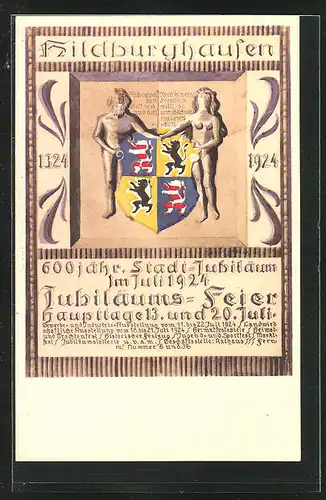 Hildburghausen
1324 1924
600 jähr. Stadt-Jubiläum
Im Juli 1924
Jubiläums-Feier
Haupttage 13. und 20. Juli.
Gewerbe- und Industrie-Ausstellung vom 11. bis 22. Juli 1924 / Landwirt-
schaftliche Ausstellung vom 18. bis 21. Juli 1924 / Heimatfestspiele / Heimat-
und Trachtenfest / Historischer Festzug / Jugend- und Sportfest / Markt-
fest / Jubiläumslotterie u.v.a.m. / Geschäftsstelle: Rathaus /// Fern-
ruf Nummer 6 und 36